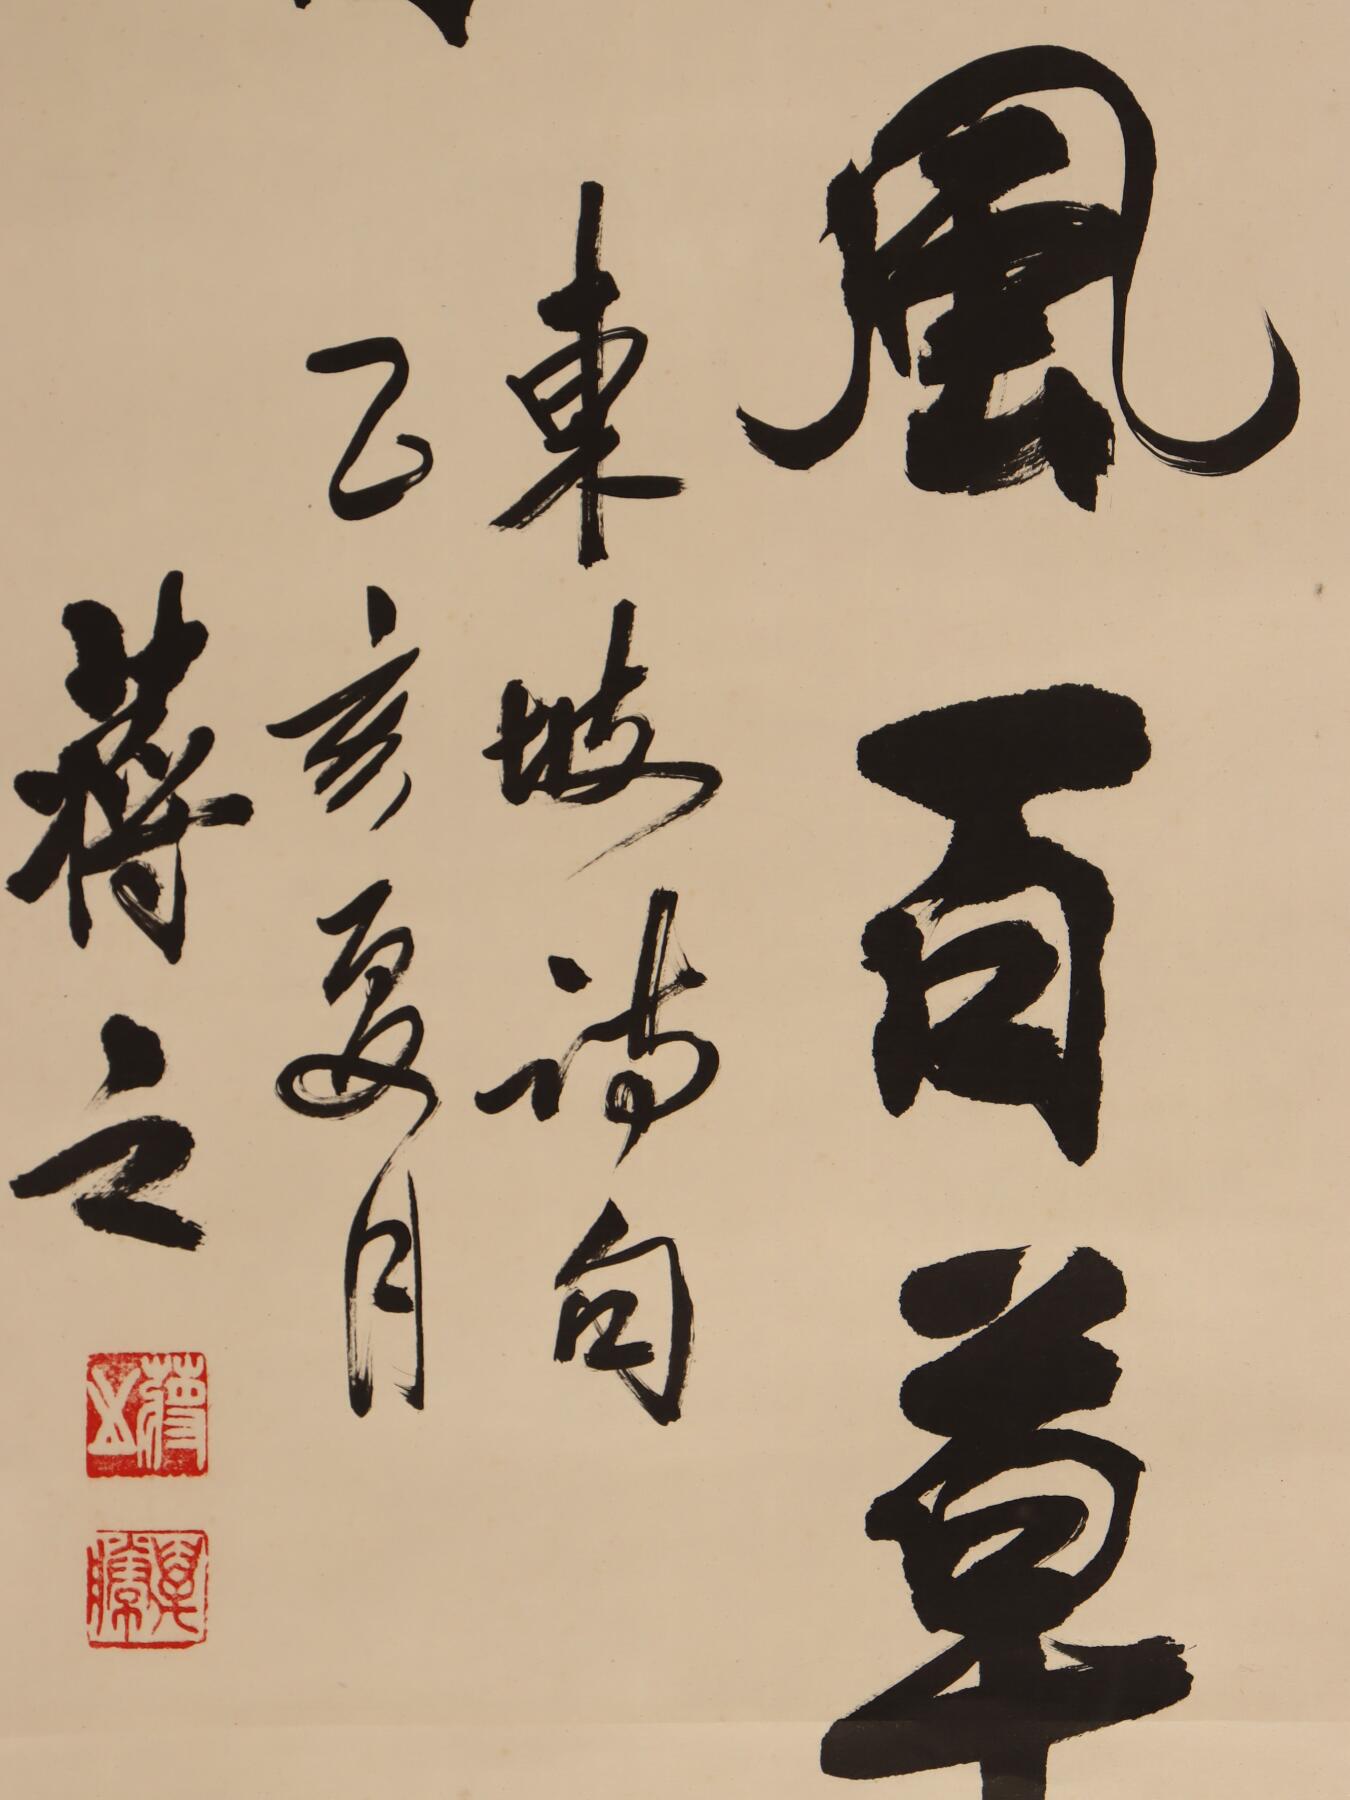 風百草
東坡詩句
乙亥夏月
蔣之